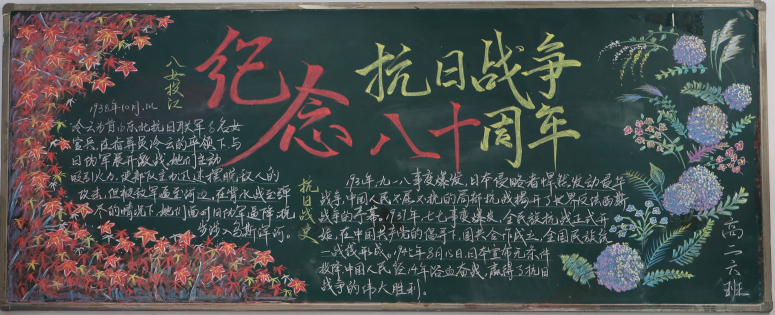 纪念
抗日战争
八十周年
八女投江
1938年10月,以
冷云为首的东北抗日联军8名女
官兵,在指导员冷云的率领下与
日伪军展开激战,她们主动
吸引火力,使部队主力迅速摆脱敌人的
攻击,但被敌军逼至河边,在背水战至弹
尽的情况下,她们面对日伪军逼降
乌斯浑河。
抗日战史
1931年,九一八事变爆发,日本侵略者悍然发动侵华
战争,中国人民不屈不挠的局部抗战揭开了世界反法西斯
战争的序幕。1937年,七七事变爆发,全民族抗战正式开
始,在中国共产党的倡导下,国共合作成立,全国民族统
一战线形成。1945年8月15日,日本宣布无条件
投降中国人民经14年浴血奋战,赢得了抗日
战争的伟大胜利。
高二六班